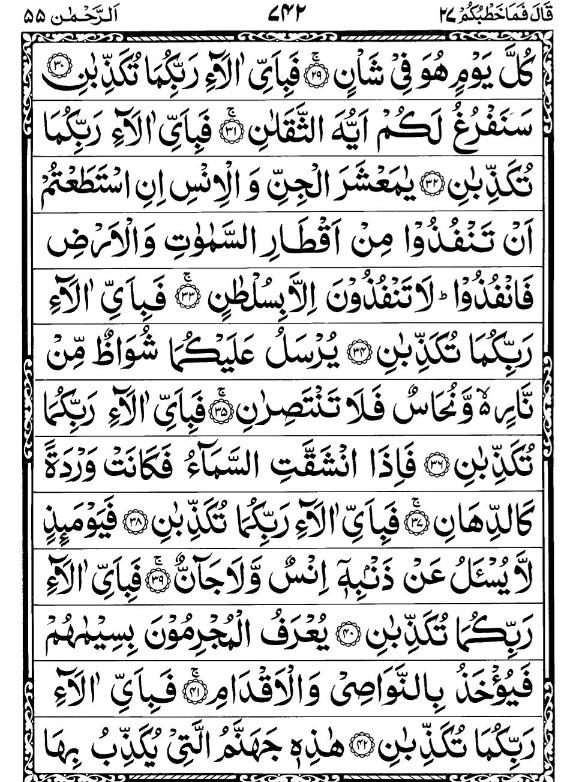 قَالَ فَمَا خَطْبُكُمْ ٢٧ ٧٤٢ اَلرَّحْمٰن ٥٥
كُلَّ يَوْمٍ هُوَ فِىْ شَاْنٍ ۚ‏ ﴿۲۹﴾ فَبِاَىِّ اٰلَاۤءِ رَبِّكُمَا تُكَذِّبٰنِ ﴿۳۰﴾
سَنَفْرُغُ لَكُمْ اَيُّهَ الثَّقَلٰنِ ۚ‏ ﴿۳۱﴾ فَبِاَىِّ اٰلَاۤءِ رَبِّكُمَا
تُكَذِّبٰنِ ﴿۳۲﴾ يٰمَعْشَرَ الْجِنِّ وَ الْاِنْسِ اِنِ اسْتَطَعْتُمْ
اَنْ تَنْفُذُوْا مِنْ اَقْطَارِ السَّمٰوٰتِ وَالْاَرْضِ
فَانْفُذُوْا ؕ لَا تَنْفُذُوْنَ اِلَّا بِسُلْطٰنٍ ۚ‏ ﴿۳۳﴾ فَبِاَىِّ اٰلَاۤءِ
رَبِّكُمَا تُكَذِّبٰنِ ﴿۳۴﴾ يُرْسَلُ عَلَيْكُمَا شُوَاظٌ مِّنْ
نَّارٍ ۙ۬ وَّنُحَاسٌ فَلَا تَنْتَصِرٰنِ ۚ‏ ﴿۳۵﴾ فَبِاَىِّ اٰلَاۤءِ رَبِّكُمَا
تُكَذِّبٰنِ ﴿۳۶﴾ فَاِذَا انْشَقَّتِ السَّمَآءُ فَكَانَتْ وَرْدَةً
كَالدِّهَانِ ۚ‏ ﴿۳۷﴾ فَبِاَىِّ اٰلَاۤءِ رَبِّكُمَا تُكَذِّبٰنِ ﴿۳۸﴾ فَيَوْمَىِٕذٍ
لَّا يُسْـَٔلُ عَنْ ذَنْۢبِهٖۤ اِنْسٌ وَّلَا جَآنٌّ ۚ‏ ﴿۳۹﴾ فَبِاَىِّ اٰلَاۤءِ
رَبِّكُمَا تُكَذِّبٰنِ ﴿۴۰﴾ يُعْرَفُ الْمُجْرِمُوْنَ بِسِيْمٰهُمْ
فَيُؤْخَذُ بِالنَّوَاصِىْ وَالْاَقْدَامِ ۚ‏ ﴿۴۱﴾ فَبِاَىِّ اٰلَاۤءِ
رَبِّكُمَا تُكَذِّبٰنِ ﴿۴۲﴾ هٰذِهٖ جَهَنَّمُ الَّتِىْ يُكَذِّبُ بِهَا